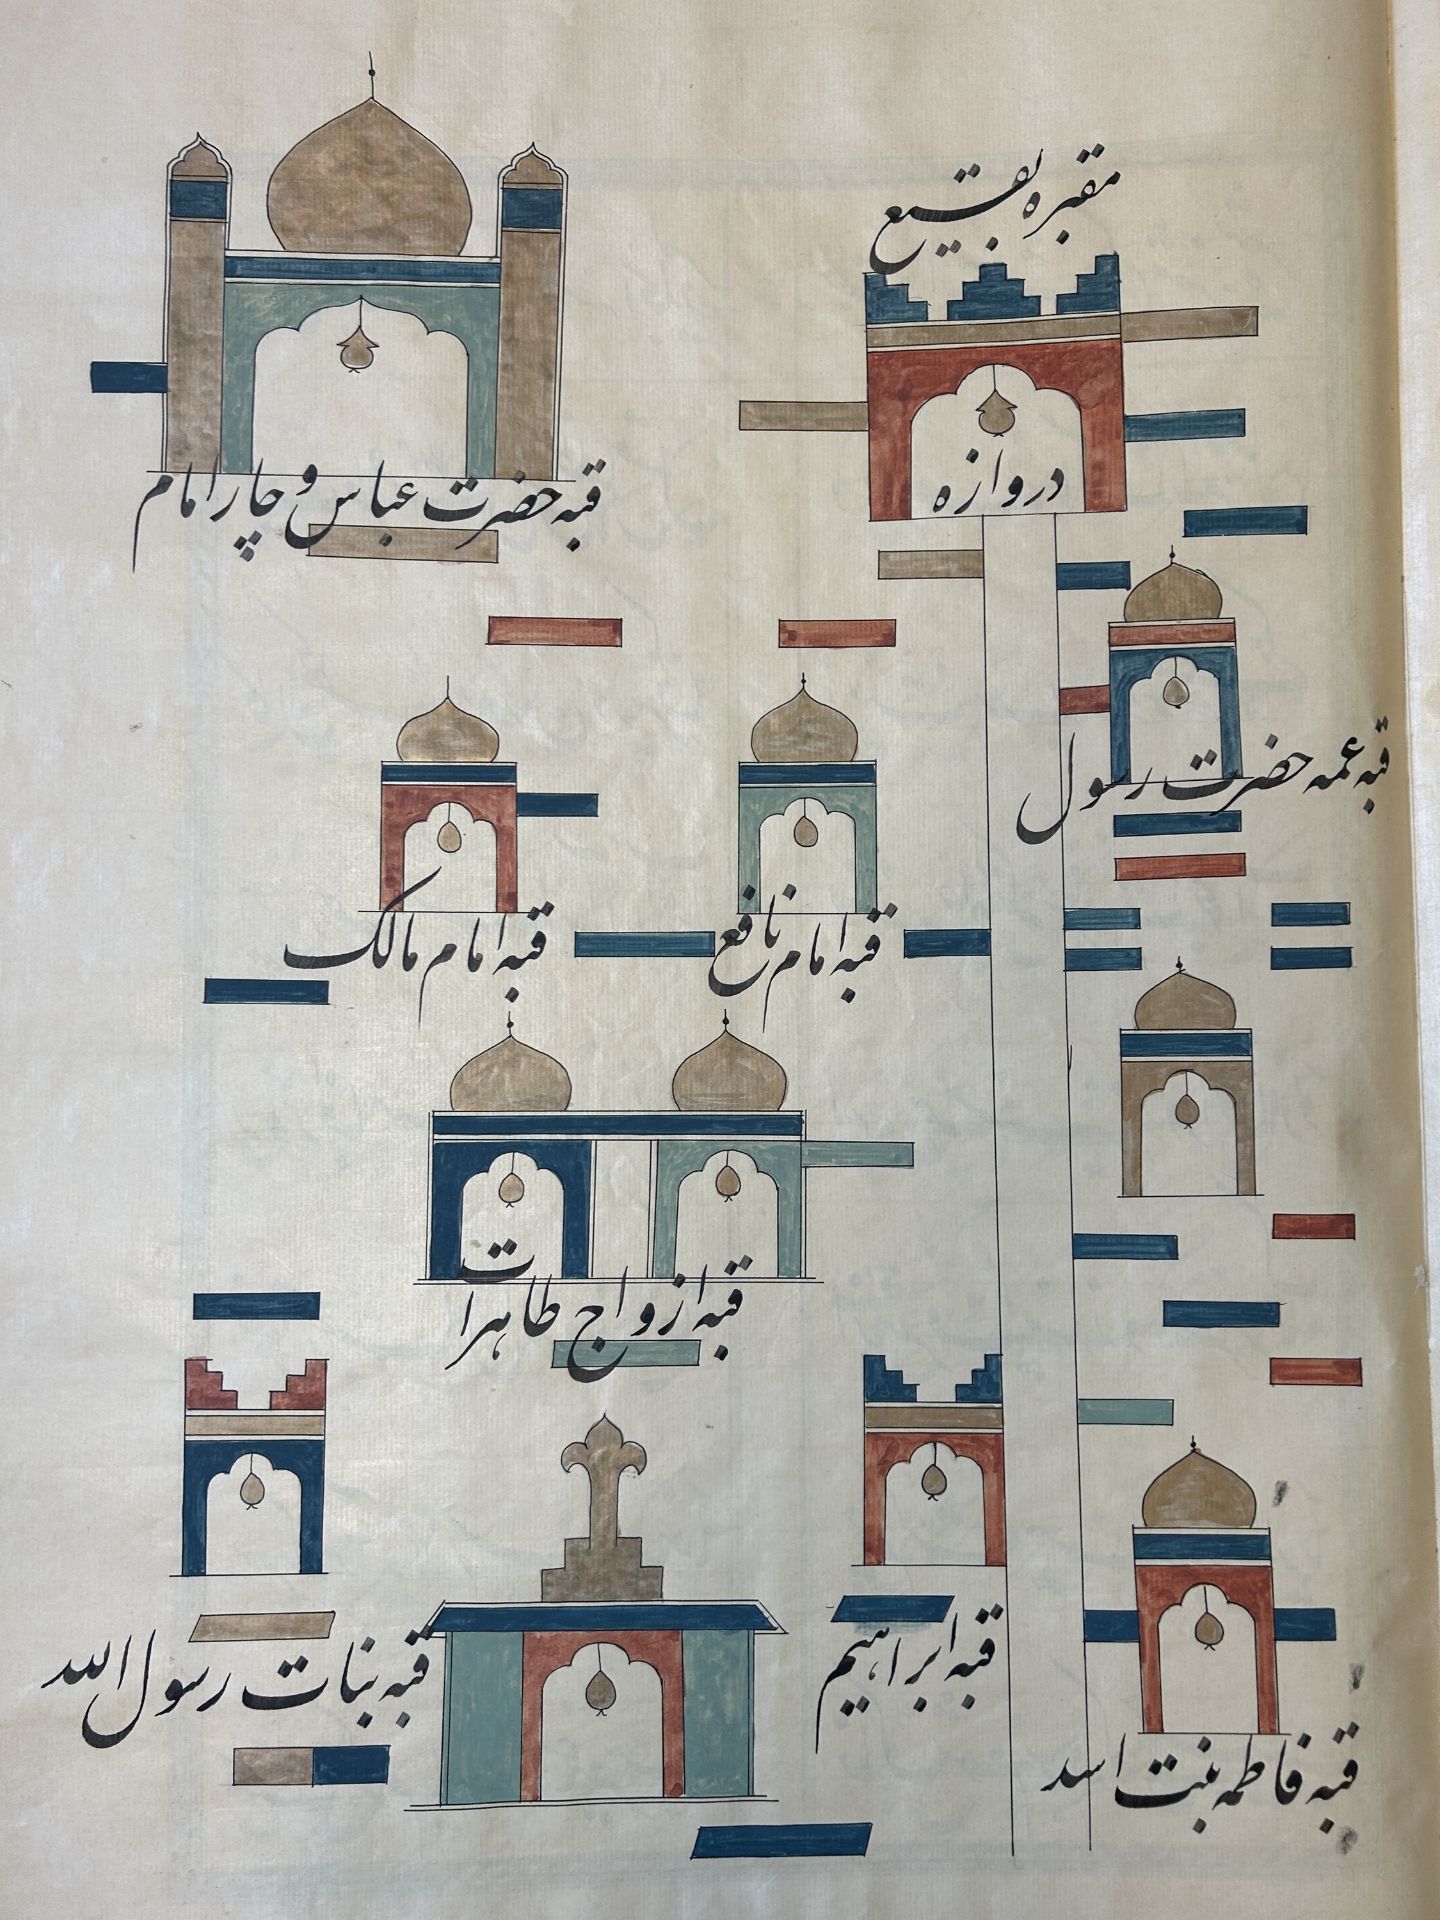 مقبره بقیع
دروازه
قبه حضرت عباس و چار امام
قبه عمه حضرت رسول
قبه امام نافع
قبه امام مالک
قبه ازواج طاهرات
قبه ابراهیم
قبه بنات رسول الله
قبه فاطمه بنت اسد